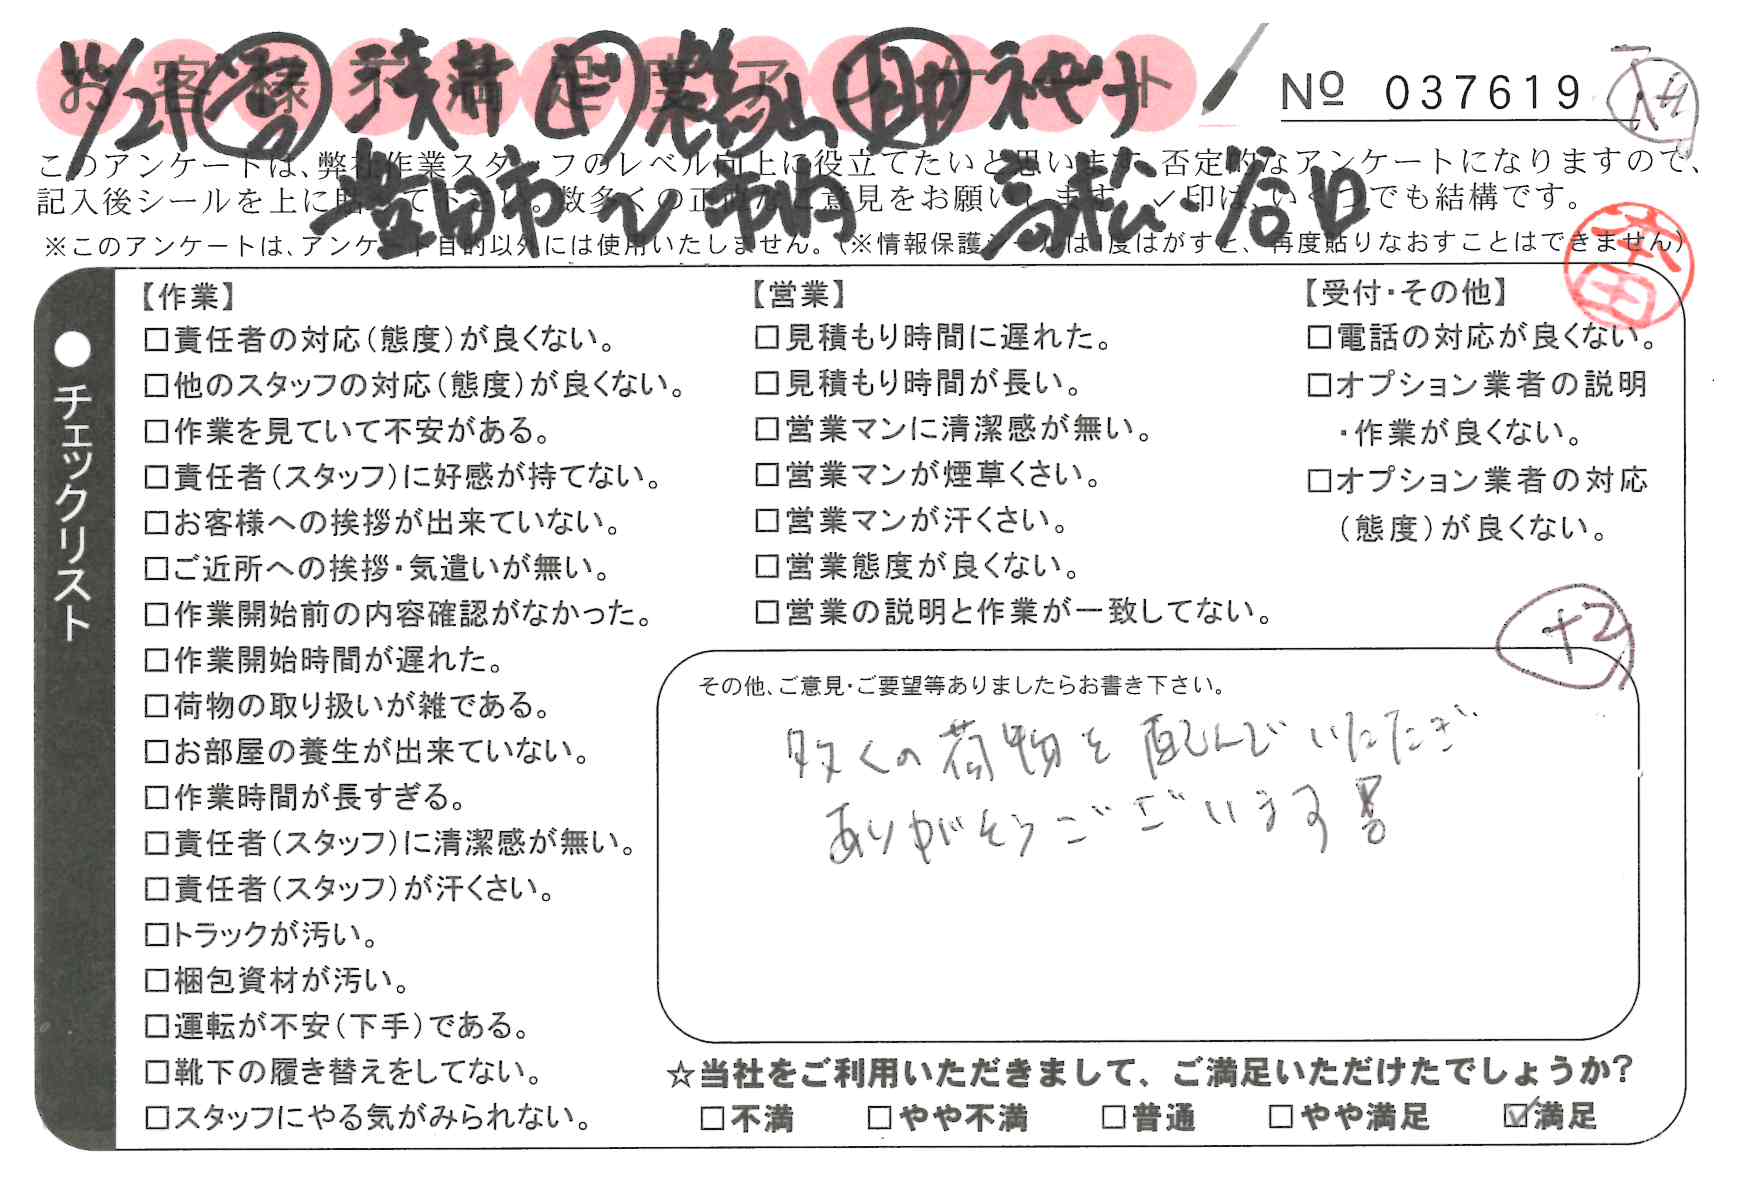 お客様不満足度アンケート
No 037619
11/21 営 ド 助
豊田市～市内 高松・谷口
このアンケートは、弊社作業スタッフのレベル向上に役立てたいと思います。否定的なアンケートになりますので、
記入後シールを上に貼って下さい。数多くの正直なご意見をお願いします。✓印は、いくつでも結構です。
※このアンケートは、アンケート目的以外には使用いたしません。（※情報保護シールは1度はがすと、再度貼りなおすことはできません）
●チェックリスト
【作業】
□責任者の対応（態度）が良くない。
□他のスタッフの対応（態度）が良くない。
□作業を見ていて不安がある。
□責任者（スタッフ）に好感が持てない。
□お客様への挨拶が出来ていない。
□ご近所への挨拶・気遣いが無い。
□作業開始前の内容確認がなかった。
□作業開始時間が遅れた。
□荷物の取り扱いが雑である。
□お部屋の養生が出来ていない。
□作業時間が長すぎる。
□責任者（スタッフ）に清潔感が無い。
□責任者（スタッフ）が汗くさい。
□トラックが汚い。
□梱包資材が汚い。
□運転が不安（下手）である。
□靴下の履き替えをしてない。
□スタッフにやる気がみられない。
【営業】
□見積もり時間に遅れた。
□見積もり時間が長い。
□営業マンに清潔感が無い。
□営業マンが煙草くさい。
□営業マンが汗くさい。
□営業態度が良くない。
□営業の説明と作業が一致してない。
【受付・その他】
□電話の対応が良くない。
□オプション業者の説明
・作業が良くない。
□オプション業者の対応
（態度）が良くない。
+2
その他、ご意見・ご要望等ありましたらお書き下さい。
多くの荷物を運んでいただき
ありがとうございます
☆当社をご利用いただきまして、ご満足いただけたでしょうか？
□不満 □やや不満 □普通 □やや満足 ☑満足